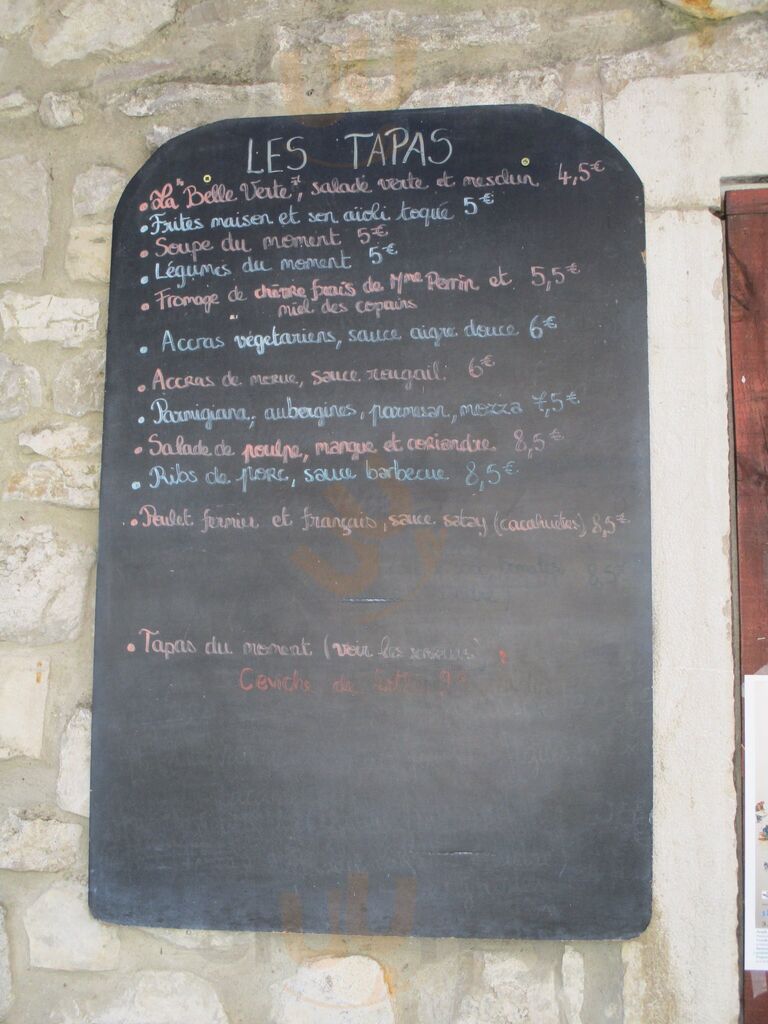 LES TAPAS
• La "Belle Verte", salade verte et mesclun 4,5€
• Frites maison et son aïoli toqué 5€
• Soupe du moment 5€
• Légumes du moment 5€
• Fromage de chèvre frais de Mme Perrin et 5,5€
miel des copains
• Accras végétariens, sauce aigre douce 6€
• Accras de morue, sauce rougail. 6€
• Parmigiana, aubergines, parmesan, mozza 7,5€
• Salade de poulpe, mangue et coriandre 8,5€
• Ribs de porc, sauce barbecue 8,5€
• Poulet fermier et français, sauce satay (cacahuètes) 8,5€
8,5
• Tapas du moment (voir les
Ceviche de